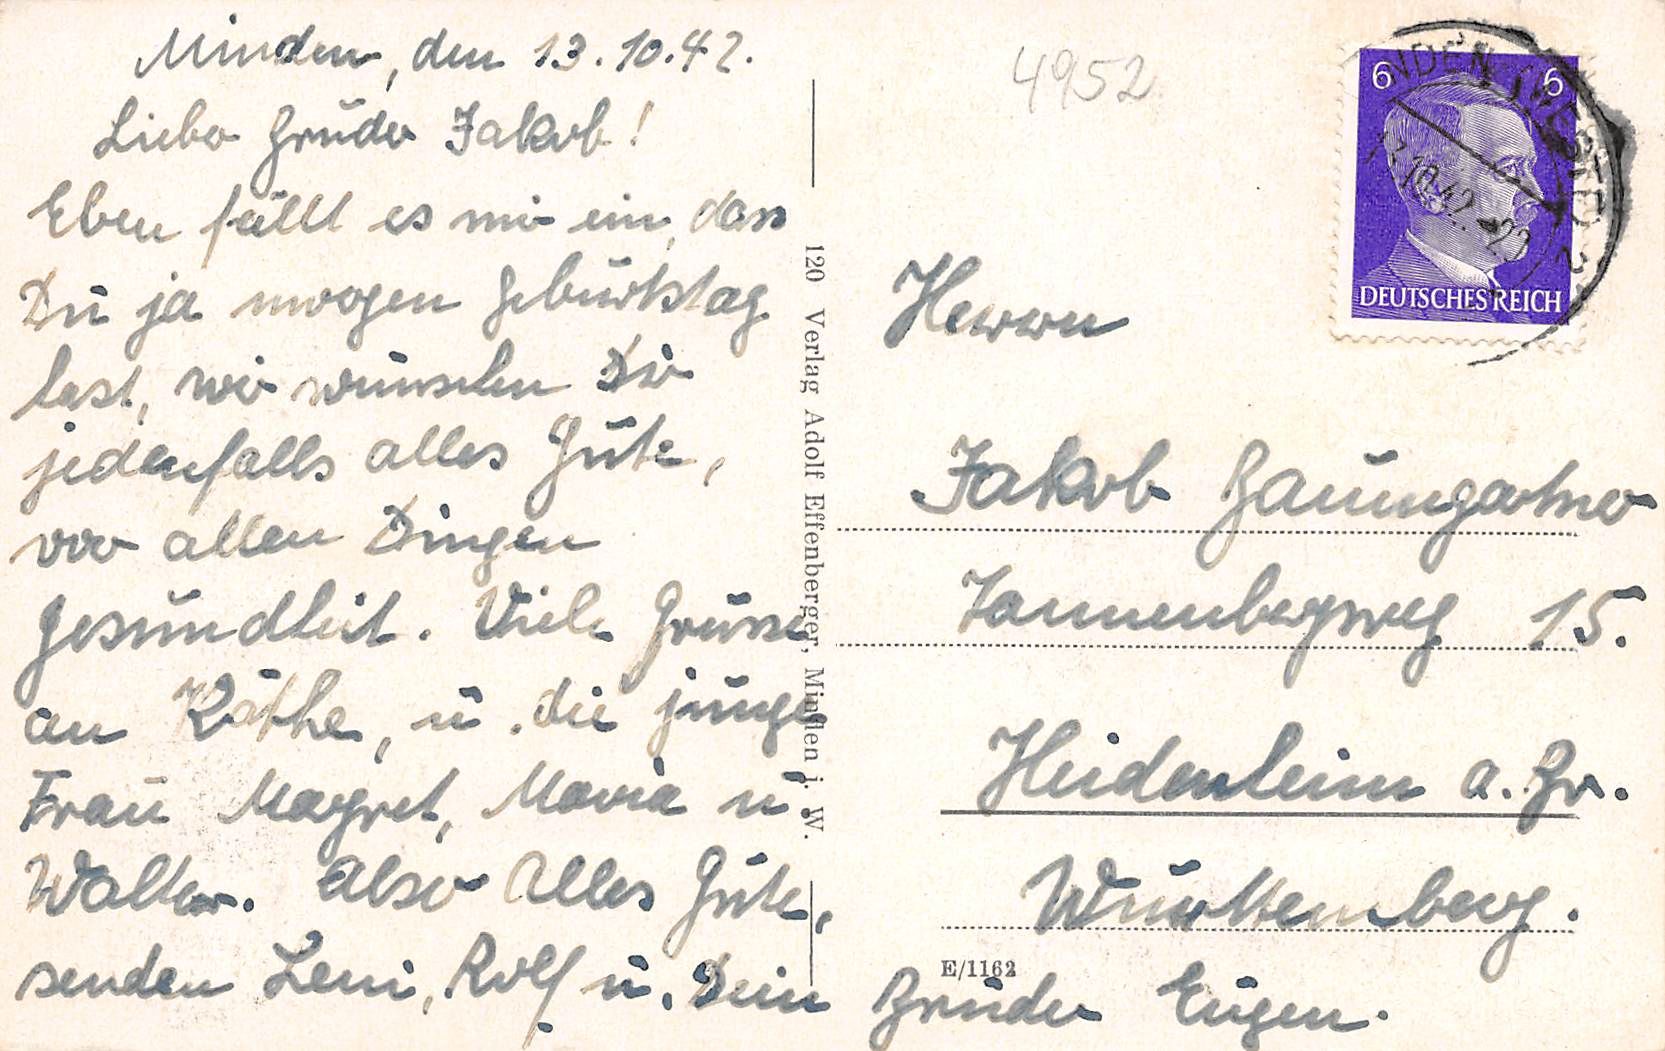 Minden, den 13.10.42.
Lieber Bruder Jakob!
Eben fällt es mir ein, dass
Du ja morgen Geburtstag
hast, wir wünschen Dir
jedenfalls alles Gute,
vor allen Dingen
Gesundheit. Viele Grüsse
an Käthe, u. die junge
Frau Margret, Maria u
Walter. Also Alles Gute,
senden Leni, Rolf u. Dein Bruder Eugen.
120 Verlag Adolf Effenberger, Minden i. W.
4952
6 6
DEUTSCHES REICH
NDEN (WESTF) 2
10.42.-20
Herrn
Jakob Baumgartner
Tannenbergweg 15.
Heidenheim a. Br.
Württemberg.
E/1162